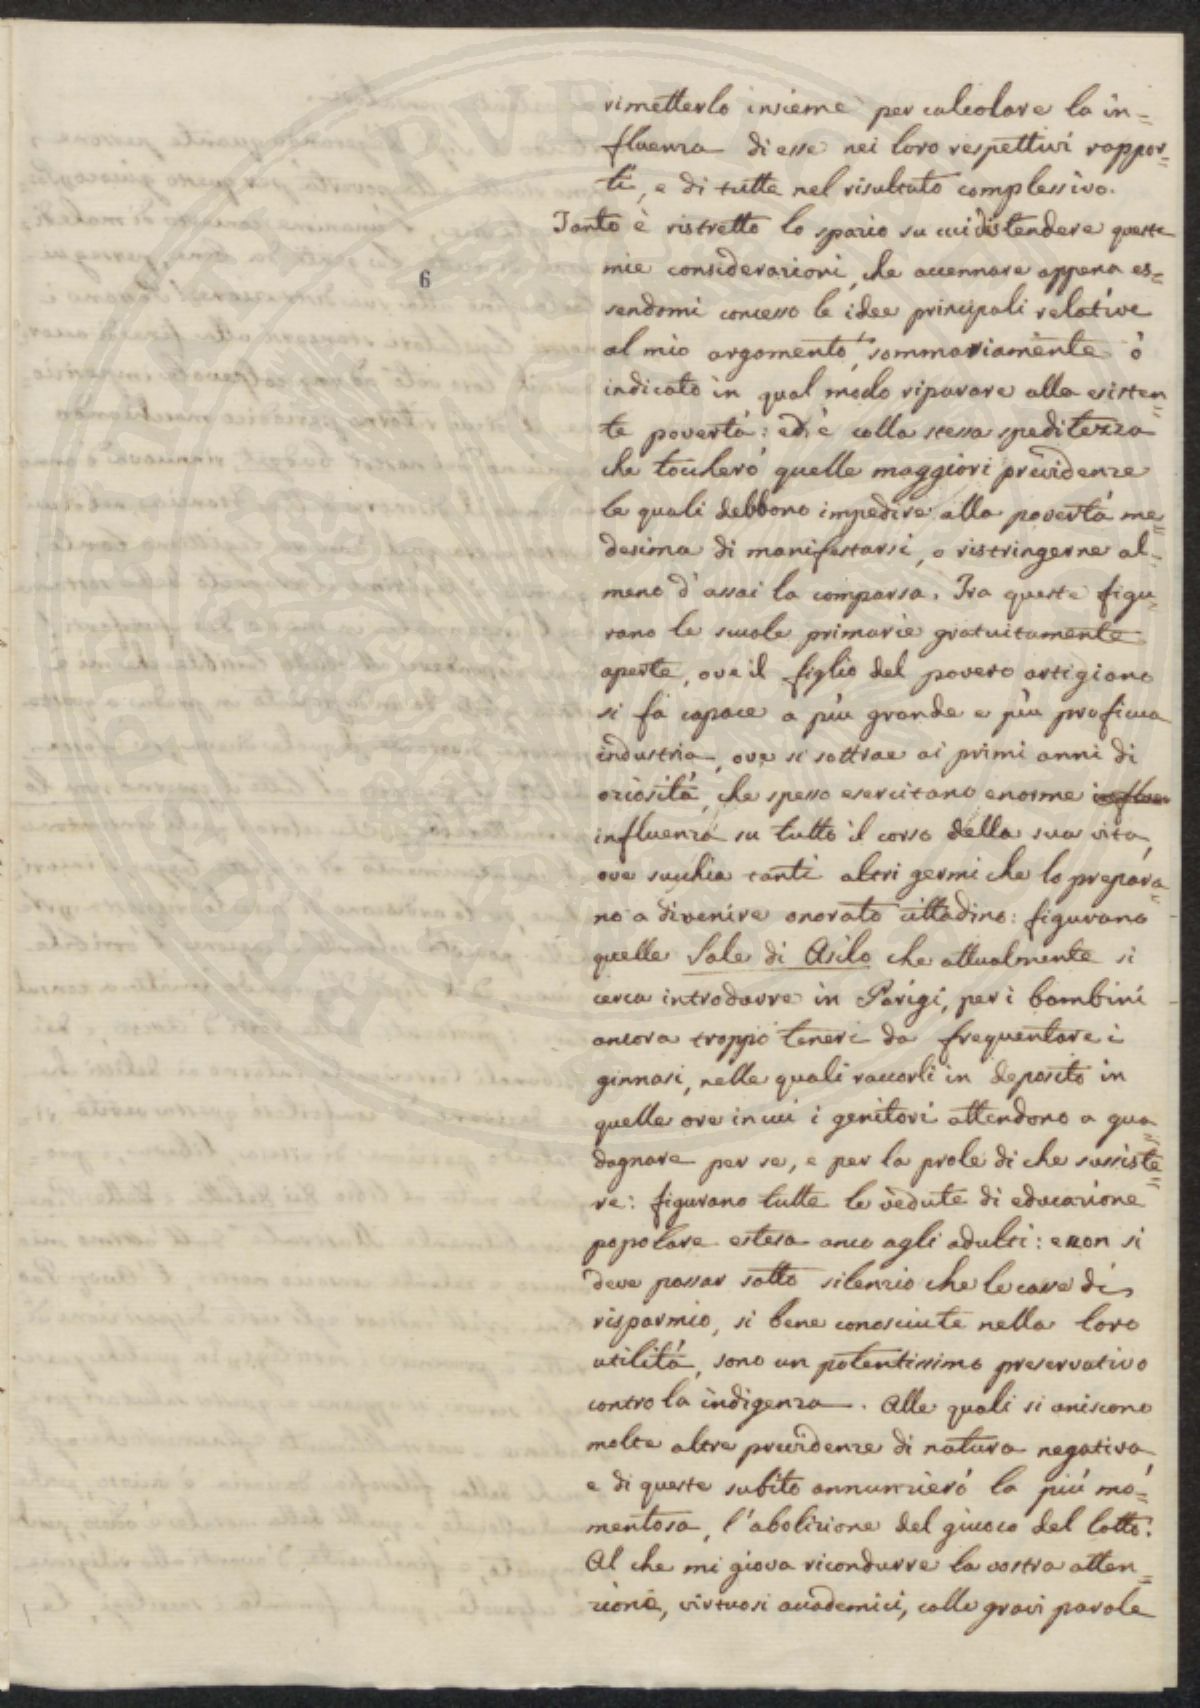 rimetterlo insieme per calcolare la in=
fluenza di esse nei loro respettivi rappor=
ti, e di tutte nel risultato complessivo.
Tanto è ristretto lo spazio su cui distendere queste
6
mie considerazioni, che accennare appena es=
sendomi concesso le idee principali relative
al mio argomento, sommariamente ò
indicato in qual modo riparare alla esisten=
te povertà: ed è colla stessa speditezza
che toccherò quelle maggiori previdenze
le quali debbono impedire alla povertà me=
desima di manifestarsi, o ristringerne al=
meno d'assai la comparsa. Tra queste figu=
rano le scuole primarie gratuitamente
aperte, ove il figlio del povero artigiano
si fa capace a più grande e più proficua
industria, ove si sottrae ai primi anni di
oziosità, che spesso esercitano enorme influen
influenza su tutto il corso della sua vita,
ove succhia tanti altri germi che lo prepara=
no a divenire onorato cittadino: figurano
quelle Sale di Asilo che attualmente si
cerca introdurre in Parigi, per i bambini
ancora troppo teneri da frequentare i
ginnasi, nelle quali raccorli in deposito in
quelle ore in cui i genitori attendono a gua=
dagnare per se, e per la prole di che sussiste=
re: figurano tutte le vedute di educazione
popolare estesa anco agli adulti: e non si
deve passar sotto silenzio che le casse di
risparmio, si bene conosciute nella loro
utilità, sono un potentissimo preservativo
contro la indigenza. Alle quali si uniscono
molte altre previdenze di natura negativa,
e di queste subito annunzierò la più mo=
mentosa, l'abolizione del giuoco del lotto.
Al che mi giova ricondurre la vostra atten=
zione, virtuosi accademici, colle gravi parole